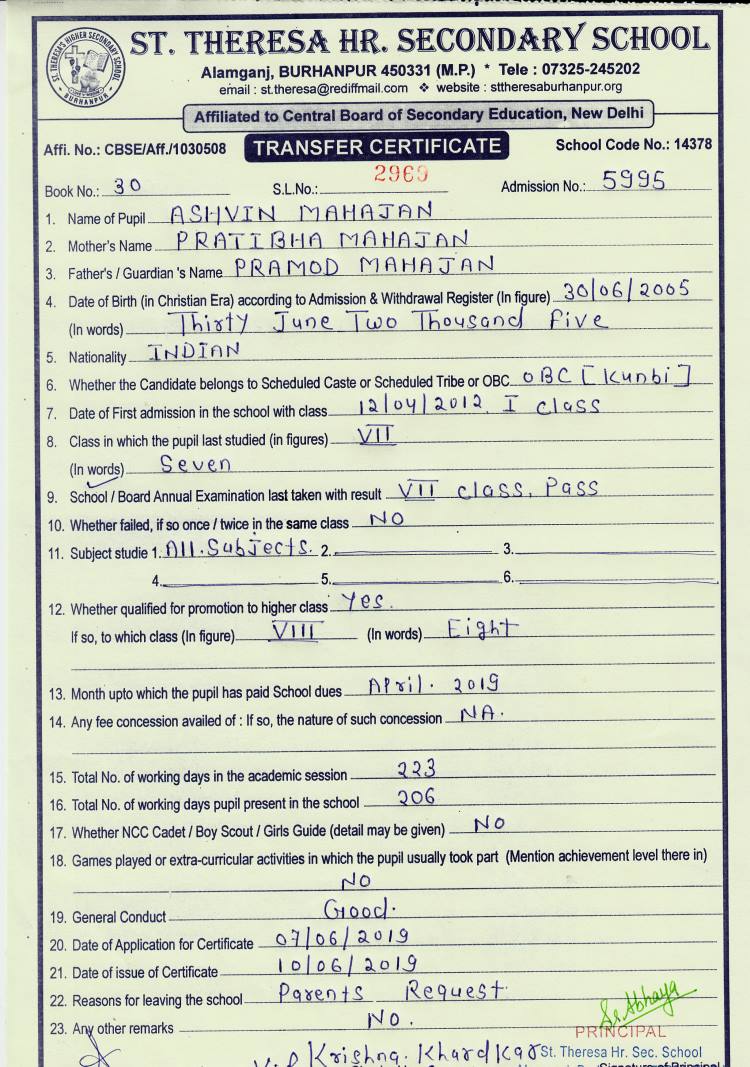 ST. THERESA'S HIGHER SECONDARY SCHOOL
BURHANPUR
ST. THERESA HR. SECONDARY SCHOOL
Alamganj, BURHANPUR 450331 (M.P.) * Tele : 07325-245202
email : st.theresa@rediffmail.com ❖ website : sttheresaburhanpur.org
Affiliated to Central Board of Secondary Education, New Delhi
Affi. No.: CBSE/Aff./1030508 TRANSFER CERTIFICATE School Code No.: 14378
Book No.: 30 S.L.No.: 2969 Admission No.: 5995
1. Name of Pupil ASHVIN MAHAJAN
2. Mother's Name PRATIBHA MAHAJAN
3. Father's / Guardian 's Name PRAMOD MAHAJAN
4. Date of Birth (in Christian Era) according to Admission & Withdrawal Register (In figure) 30/06/2005
(In words) Thirty June Two Thousand five
5. Nationality INDIAN
6. Whether the Candidate belongs to Scheduled Caste or Scheduled Tribe or OBC OBC [Kunbi]
7. Date of First admission in the school with class 12/04/2012, I class
8. Class in which the pupil last studied (in figures) VII
(In words) Seven
9. School / Board Annual Examination last taken with result VII class, Pass
10. Whether failed, if so once / twice in the same class NO
11. Subject studie 1. All.Subjects. 2. 3.
4. 5. 6.
12. Whether qualified for promotion to higher class Yes.
If so, to which class (In figure) VIII (In words) Eight
13. Month upto which the pupil has paid School dues April. 2019
14. Any fee concession availed of : If so, the nature of such concession NA.
15. Total No. of working days in the academic session 223
16. Total No. of working days pupil present in the school 206
17. Whether NCC Cadet / Boy Scout / Girls Guide (detail may be given) NO
18. Games played or extra-curricular activities in which the pupil usually took part (Mention achievement level there in)
NO
19. General Conduct Good.
20. Date of Application for Certificate 07/06/2019
21. Date of issue of Certificate 10/06/2019
22. Reasons for leaving the school Parents Request.
23. Any other remarks No.
Sr. Abhaya
PRINCIPAL
Krishna. Khardkar St. Theresa Hr. Sec. School
Signature of Principal